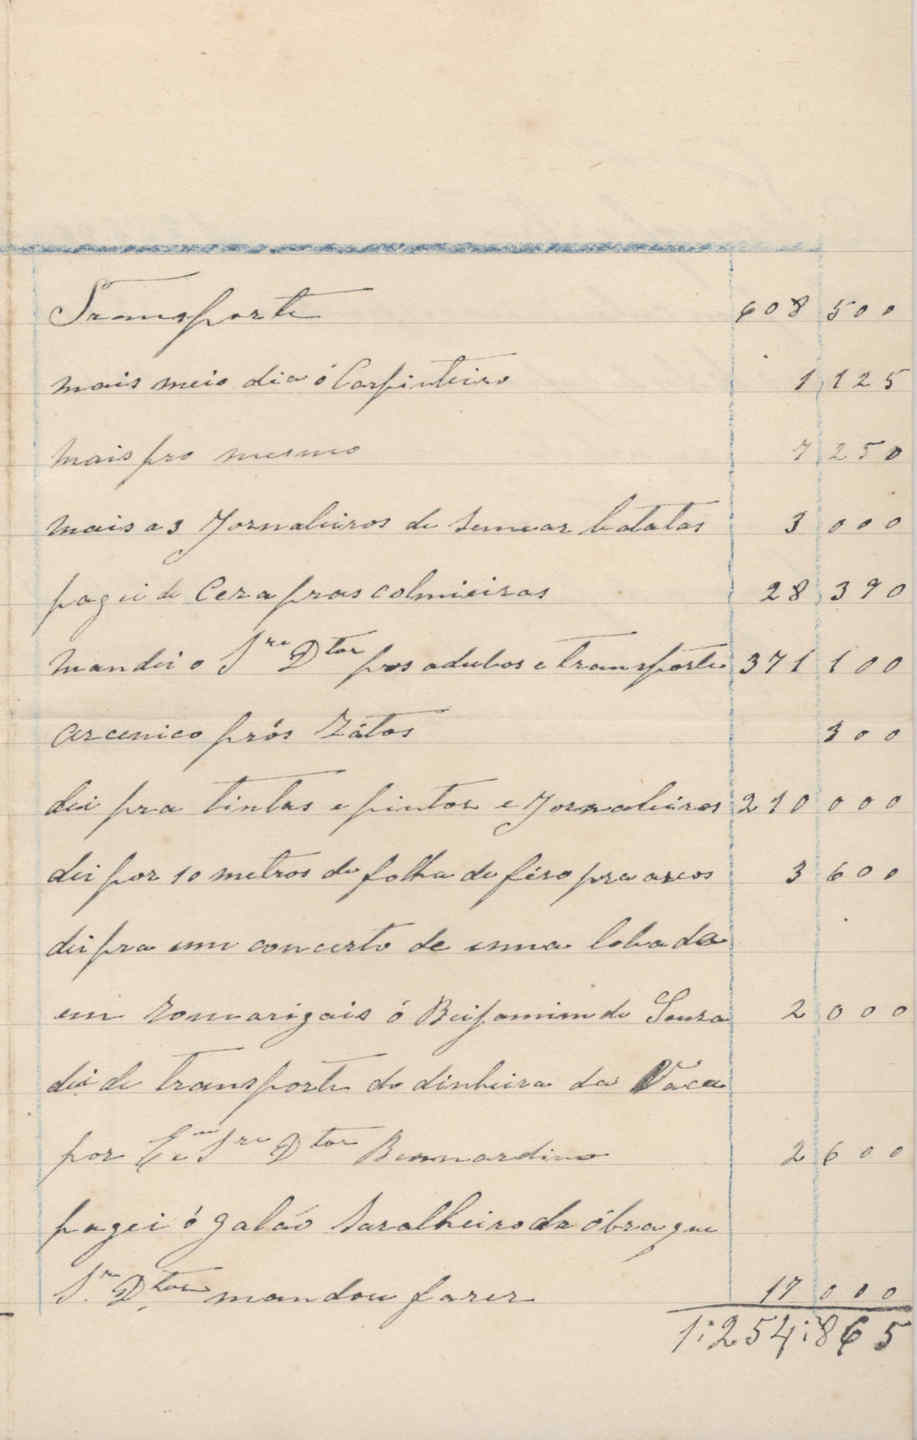 Transporte 608 500
mais meio dia ó Carpinteiro 1,125
mais pro mesmo 7 250
mais a 3 Jornaleiros de semear batatas 3 000
pagei de Cera pras colmieiras 28 390
mandei o Snr Dtor pros adubos e transporte 371 100
arcenico prós Rátos 300
dei pra tintas e pintor e Jornaleiros 210 000
dei por 10 metros de folha de féro pra arcos 3 600
dei pra um concerto de uma lobada
em Romarigais ó Beijamim de Souza 2 000
dei de transporte do dinheiro da Váca
por Snr Dtor Bernardino 2 600
pagei ó galáo Saralheiro da óbra que
Snr. Dtor mandou fazer 17 000
1:254:865